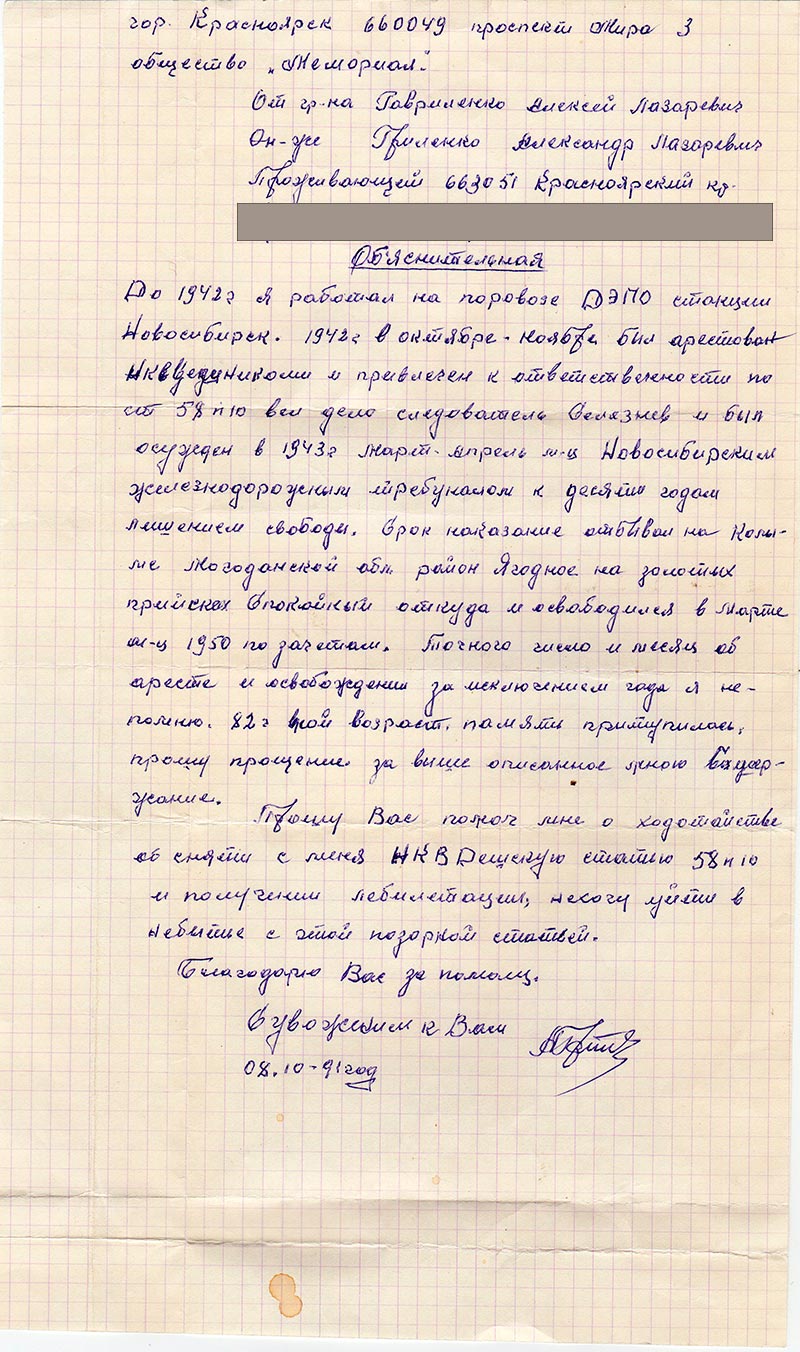 гор. Красноярск 660049 проспект Мира 3
общество „Мемориал."
От гр-на Гавриленко Алексей Лазаревич
Он-же Гриленко Александр Лазаревич
Проживающей 663051 Красноярский кр.
Об'яснительная
До 1942г я работал на поровозе ДЭПО станции
Новосибирск. 1942г в октябре-ноябре был арестован
и привлечен к ответственности по
ст 58 п 10 вел дело следователь Селезнев и был
осужден в 1943г март-апрель м-ц Новосибирским
железнодорожным требуналом к десяти годам
лишением свободы. Срок наказание отбывал на Колы-
ме Могоданской обл. район Ягодное на золотых
прийсках Спокойный откуда и освободился в марте
м-ц 1950 по зачетам. Точного число и месяц об
аресте и освобождении за исключением года я не-
помню. 82г мой возраст. память притупилась,
прошу прощение за выше описанное мною
жание.
Прошу Вас помоч мне о ходотайстве
об сняти с меня НКВДешскую статью 58 п 10
и получении лебилетации, нехочу уйти в
небытие с этой позорной статьей.
Благодарю Вас за помощ.
Суважением к Вам
08.10-91 год